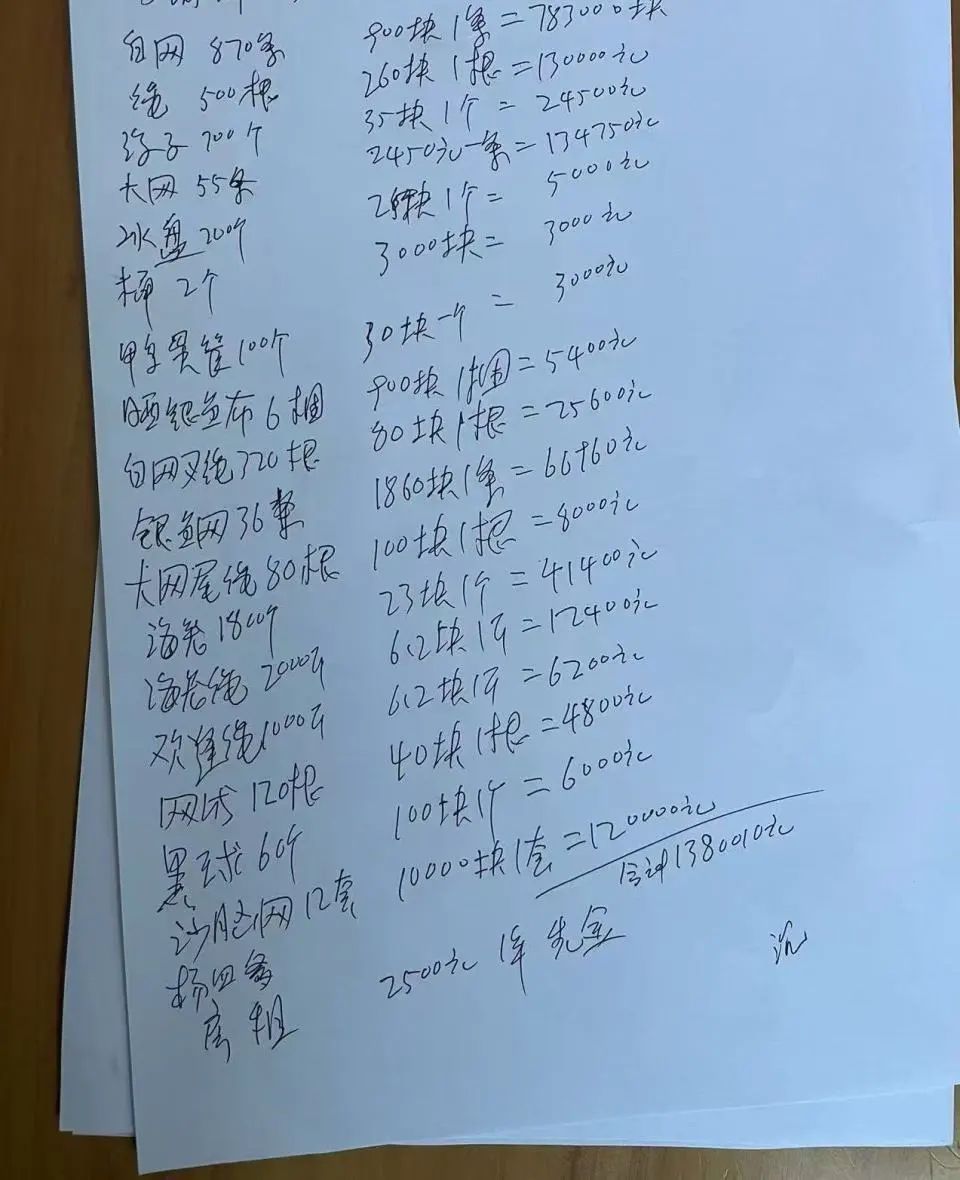 白网 870条 900块1条=783000块
绳 500根 260块1根=130000元
浮子 700个 35块1个=24500元
大网 55条 2450元一条=134750元
冰盘 200个 25块1个= 5000元
桶 2个 3000块= 3000元
鸭蛋筐 100个 30块一个= 3000元
晒银鱼布 6捆 900块1捆=5400元
白网叉绳 320根 80块1根=25600元
银鱼网 36条 1860块1条=66960元
大网尾绳 80根 100块1根=8000元
海兜 1800个 23块1个=41400元
海兜绳 2000斤 6.2块1斤=12400元
绳 1000斤 6.2块1斤=6200元
网 120根 40块1根=4800元
黑球 60个 100块1个=6000元
网 12套 10000块1套=120000元
合计1380010元
杨四
房租 2500元 1年 先金